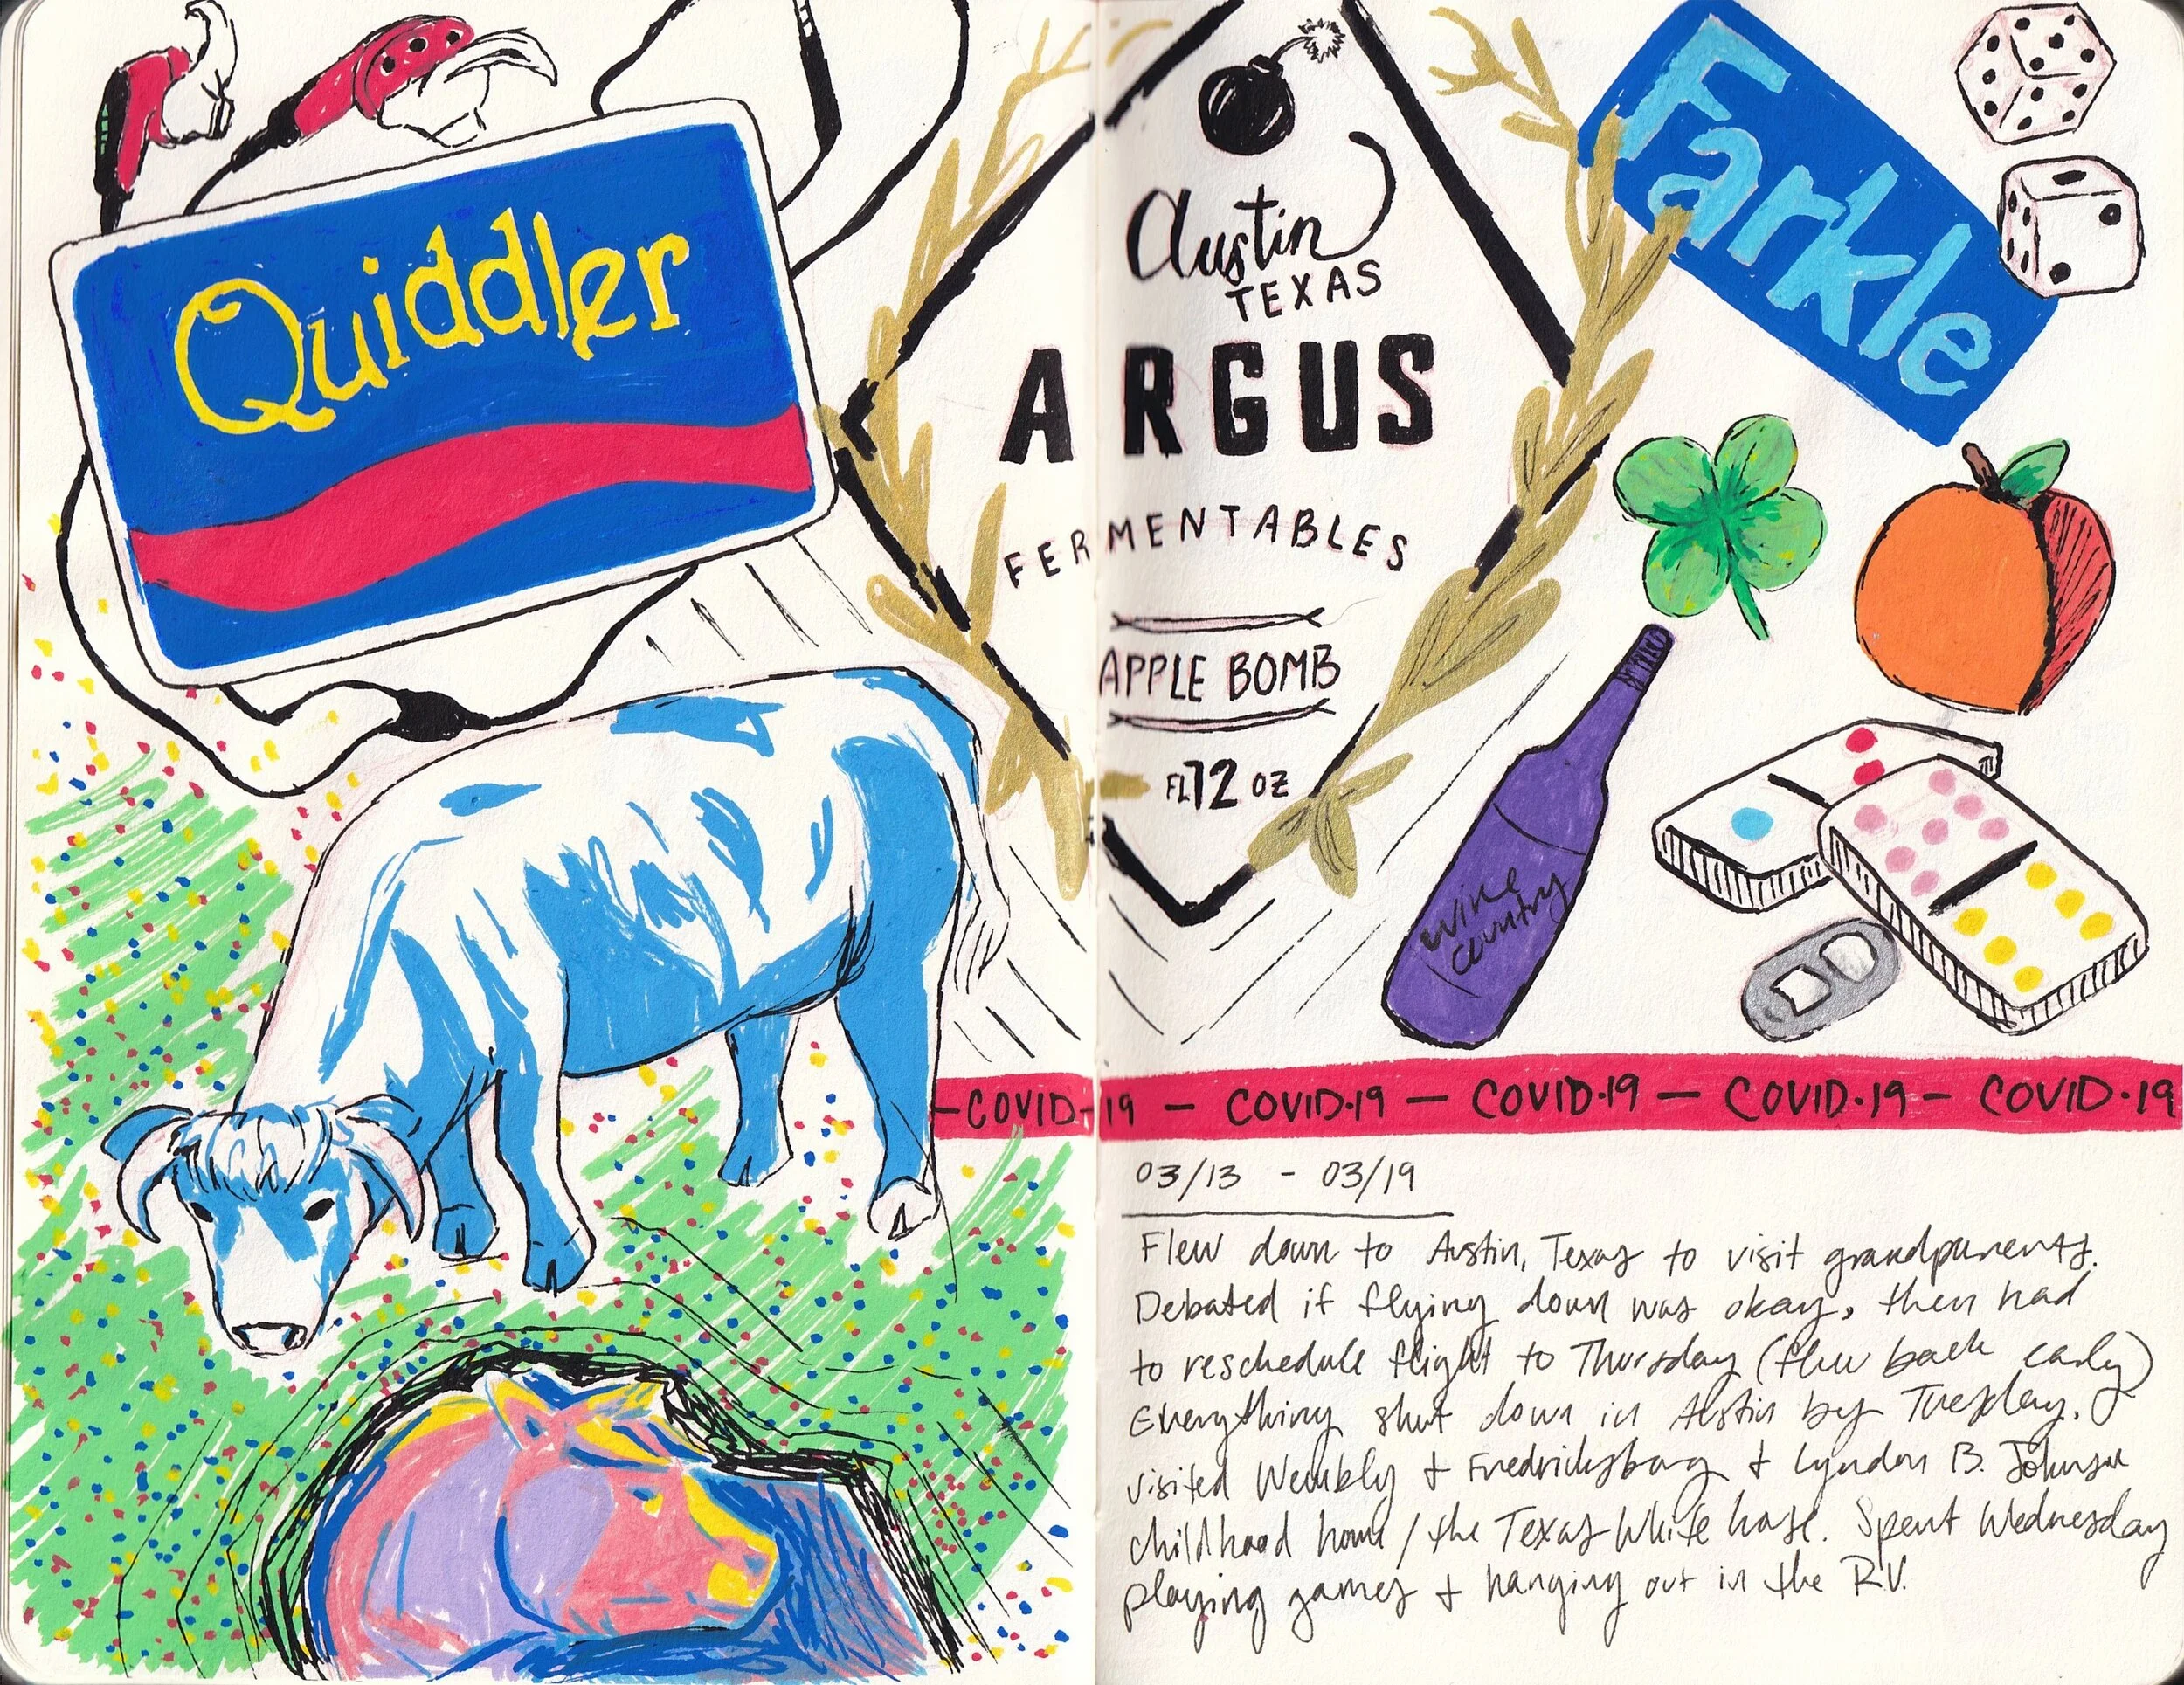 Quiddler
Austin
TEXAS
ARGUS
FERMENTABLES
APPLE BOMB
FL 12 OZ
Farkle
wine
country
-COVID-19 — COVID·19 — COVID·19 — COVID·19 - COVID·19
03/13 - 03/19
Flew down to Austin, Texas to visit grandparents.
Debated if flying down was okay, then had
to reschedule flight to Thursday (flew back early)
Everything shut down in Austin by Tuesday.
visited Wembly + Fredricksburg + Lyndon B. Johnson
childhood home / the Texas White house. Spent Wednesday
playing games + hanging out in the R.V.